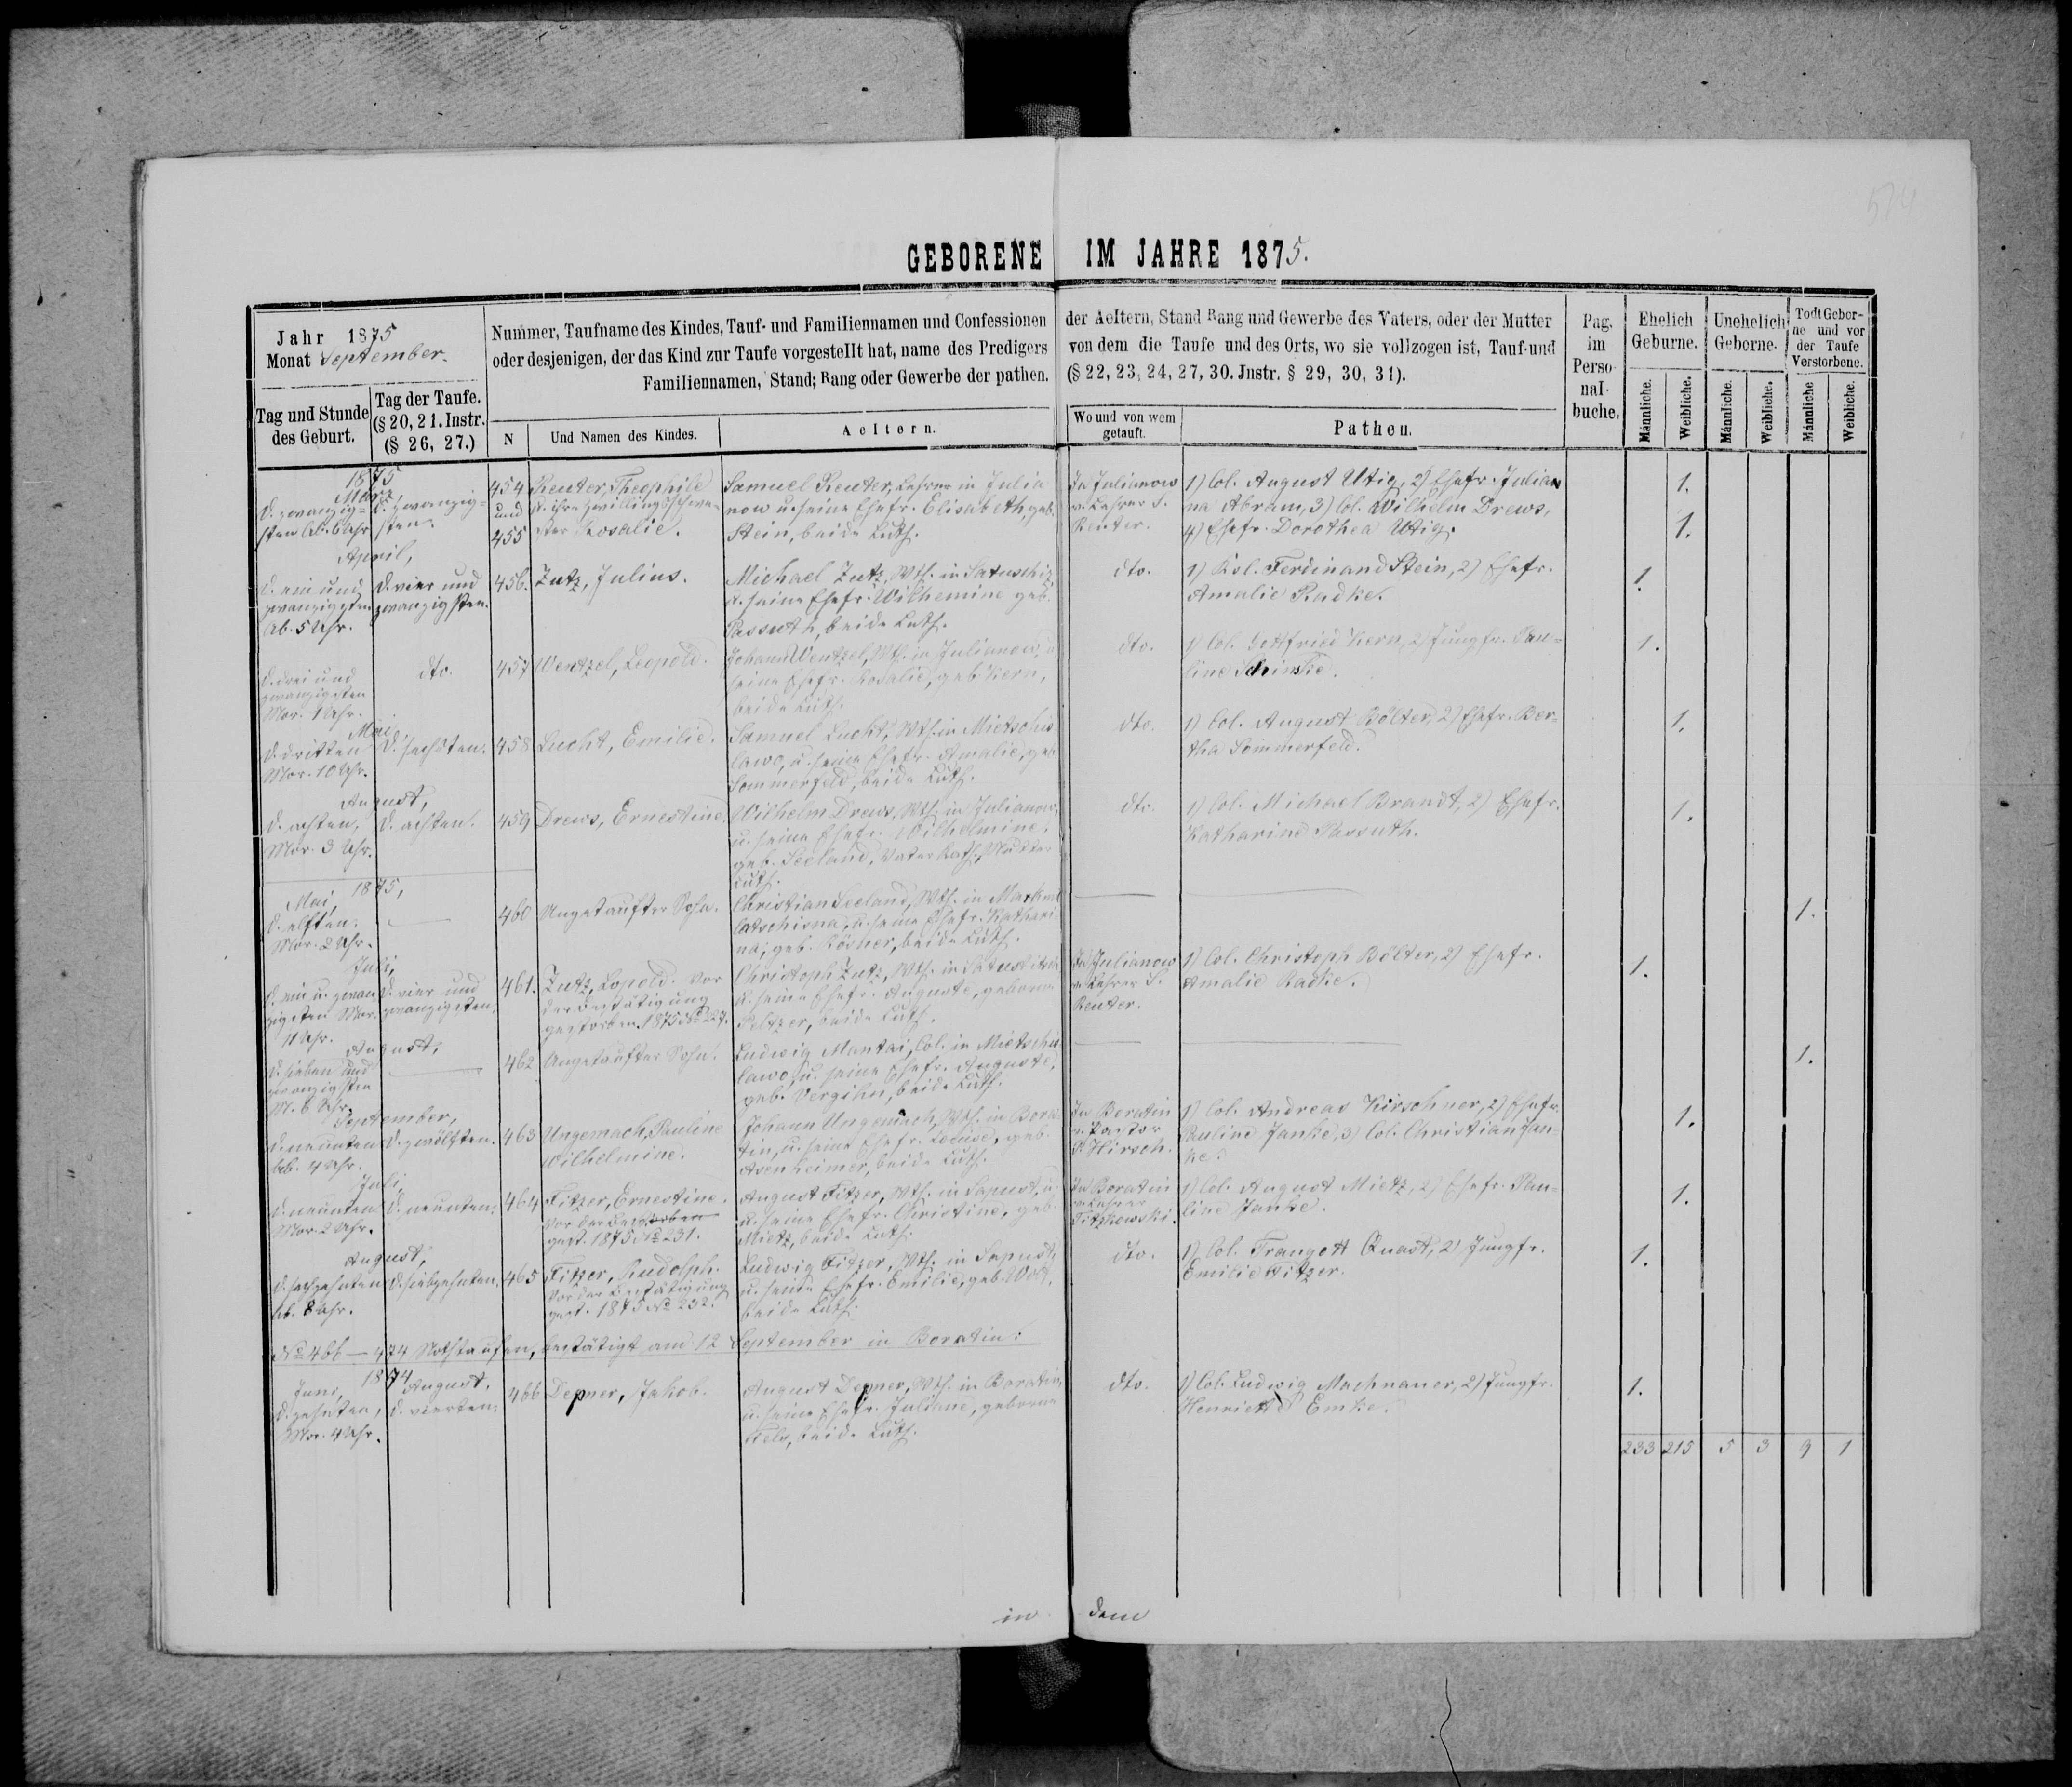 514
GEBORENE IM JAHRE 1875.
Jahr 1875
Monat September.
Tag und Stunde
des Geburt.
Tag der Taufe.
(§ 20, 21. Instr.
(§ 26, 27.)
Nummer, Taufname des Kindes, Tauf- und Familiennamen und Confessionen
oder desjenigen, der das Kind zur Taufe vorgestellt hat, name des Predigers
Familiennamen, Stand; Rang oder Gewerbe der pathen.
N
Und Namen des Kindes.
Aeltern.
der Aeltern, Stand Rang und Gewerbe des Vaters, oder der Mutter
von dem die Taufe und des Orts, wo sie vollzogen ist, Tauf-und
(§ 22, 23, 24, 27, 30. Jnstr. § 29, 30, 31).
Wo und von wem
getauft.
Pathen.
Pag.
im
Perso-
nal-
buche.
Ehelich
Geburne.
Unehelich
Geborne.
Todt Gebor-
ne und vor
der Taufe
Verstorbene.
Männliche.
Weibliche.
Männliche.
Weibliche.
Männliche
Weibliche.
1875
März,
d. zwanzig-
sten Ab. 6 Uhr
d. zwanzig-
sten.
454
und
455
Reuter, Theophile
u. ihre Zwillingsschwe-
ster Rosalie.
Samuel Reuter, Lehrer in Julia
now u. seine Ehefr. Elisabeth, geb.
Stein, beide Luth.
In Julianow
v. Lehrer S.
Reuter.
1) Col. August Utig, 2) Ehefr. Julian
na Abram, 3) Col. Wilhelm Drews,
4) Ehefr. Dorothea Utig.
1.
1.
April,
d. ein und
zwanzigsten
Ab. 5 Uhr.
d. vier und
zwanzigsten.
456.
Zutz, Julius.
Michael Zutz, Wth. in
u. seine Ehefr. Wilhemine geb.
Passuth, beide Luth.
dto.
1) Col. Ferdinand Stein, 2) Ehefr.
Amalie Radke.
1.
d. drei und
zwanzigsten
Mor. 1 Uhr.
dto.
457
Wentzel, Leopold.
Johann Wentzel, Wth. in Julianow, u.
seine Ehefr. Rosalie, geb. Kern,
beide Luth.
dto.
1) Col. Gottfried Kern, 2) Jungfr. Pau-
line Schinske.
1.
Mai,
d. dritten
Mor. 10 Uhr.
d. sechsten.
458
Lucht, Emilie.
Samuel Lucht, Wth. in Mietschis
lawo, u. seine Ehefr. Amalie, geb.
Sommerfeld, beide Luth.
dto.
1) Col. August Bölter, 2) Ehefr. Ber-
tha Sommerfeld.
1.
August,
d. achten,
Mor. 3 Uhr.
d. achten.
459
Drews, Ernestine.
Wilhelm Drews, Wth. in Julianow,
u. seine Ehefr. Wilhelmine,
geb. Seeland, Vater Kath., Mutter
Luth.
dto.
1) Col. Michael Brandt, 2) Ehefr.
Katharine Passuth.
1.
Mai, 1875,
d. elften.
Mor. 2 Uhr.
460
Ungetaufter Sohn.
Christian Seeland, Wth. in
u. seine Ehefr. Kathari
na, geb. Rösner, beide Luth.
1.
Juli,
d. ein u. zwan
zigsten Mor.
11 Uhr.
d. vier und
zwanzigsten.
461.
Zutz, Lopold. Vor
der Bestätigung
gestorben 1875 No 227.
Christoph Zutz, Wth. in
u. seine Ehefr. Auguste, geborne
Peltzer, beide Luth.
In Julianow
v. Lehrer S.
Reuter.
1) Col. Christoph Bölter, 2) Ehefr.
Amalie Radke.
1.
August,
d. sieben und
zwanzigsten
M. 6 Uhr.
462
Ungetaufter Sohn.
Ludwig Mantai, Col. in Mietschis
lawo, u. seine Ehefr. Auguste,
geb. Vergihn, beide Luth.
1.
September,
d. neunten
Ab. 4 Uhr.
d. zwölften.
463
Ungemach, Pauline
Wilhelmine.
Johann Ungemach, Wth. in Bora
tin, u. seine Ehefr. Louise, geb.
Asenheimer, beide Luth.
In Boratin
v. Pastor
P. Hirsch.
1) Col. Andreas Kirschner, 2) Ehefr.
Pauline Janke, 3) Col. Christian Jan-
ke.
1.
Juli,
d. neunten
Mor. 2 Uhr.
d. neunten.
464
Fitzer, Ernestine.
gest. 1875 No 231.
August Fitzer, Wth. in Sapust, u.
u. seine Ehefr. Christine, geb.
Mietz, beide Luth.
In Boratin
v. Lehrer
Titzkowski.
1) Col. August Mietz, 2) Ehefr. Pau-
line Janke.
1.
August,
d. sechzehnten
Ab. 8 Uhr.
d. siebzehnten.
465
Fitzer, Rudolph.
Vor der Bestätigung
gest. 1875 No 232.
Ludwig Fitzer, Wth. in Sapust,
u. seine Ehefr. Emilie, geb. Wolf,
beide Luth.
dto.
1) Col. Traugott Quast, 2) Jungfr.
Emilie Fitzer.
1.
No 466 — 474 Nothtaufen, bestätigt am 12 September in Boratin:
1874
Juni,
d. zehnten,
Mor. 4 Uhr.
August,
d. vierten.
466
Depner, Jakob.
August Depner, Wth. in Boratin,
u. seine Ehefr. Juliane, geborne
Fels, beide Luth.
dto.
1) Col. Ludwig Machnauer, 2) Jungfr.
Henriette Emke.
1.
233 215 5 3 9 1
in dem